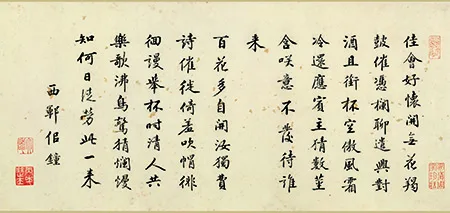 佳會好懷開無花羯
鼓催憑欄聊遣興對
酒且銜杯空傲風霜
冷還應賓主猜數莖
含咲意不發待誰
来
百花多自開汝獨費
詩催徒倚羞吹帽徘
徊謾舉杯时清人共
樂歌沸鳥驚猜爛熳
知何日徒勞此一来
西鄆佀鍾